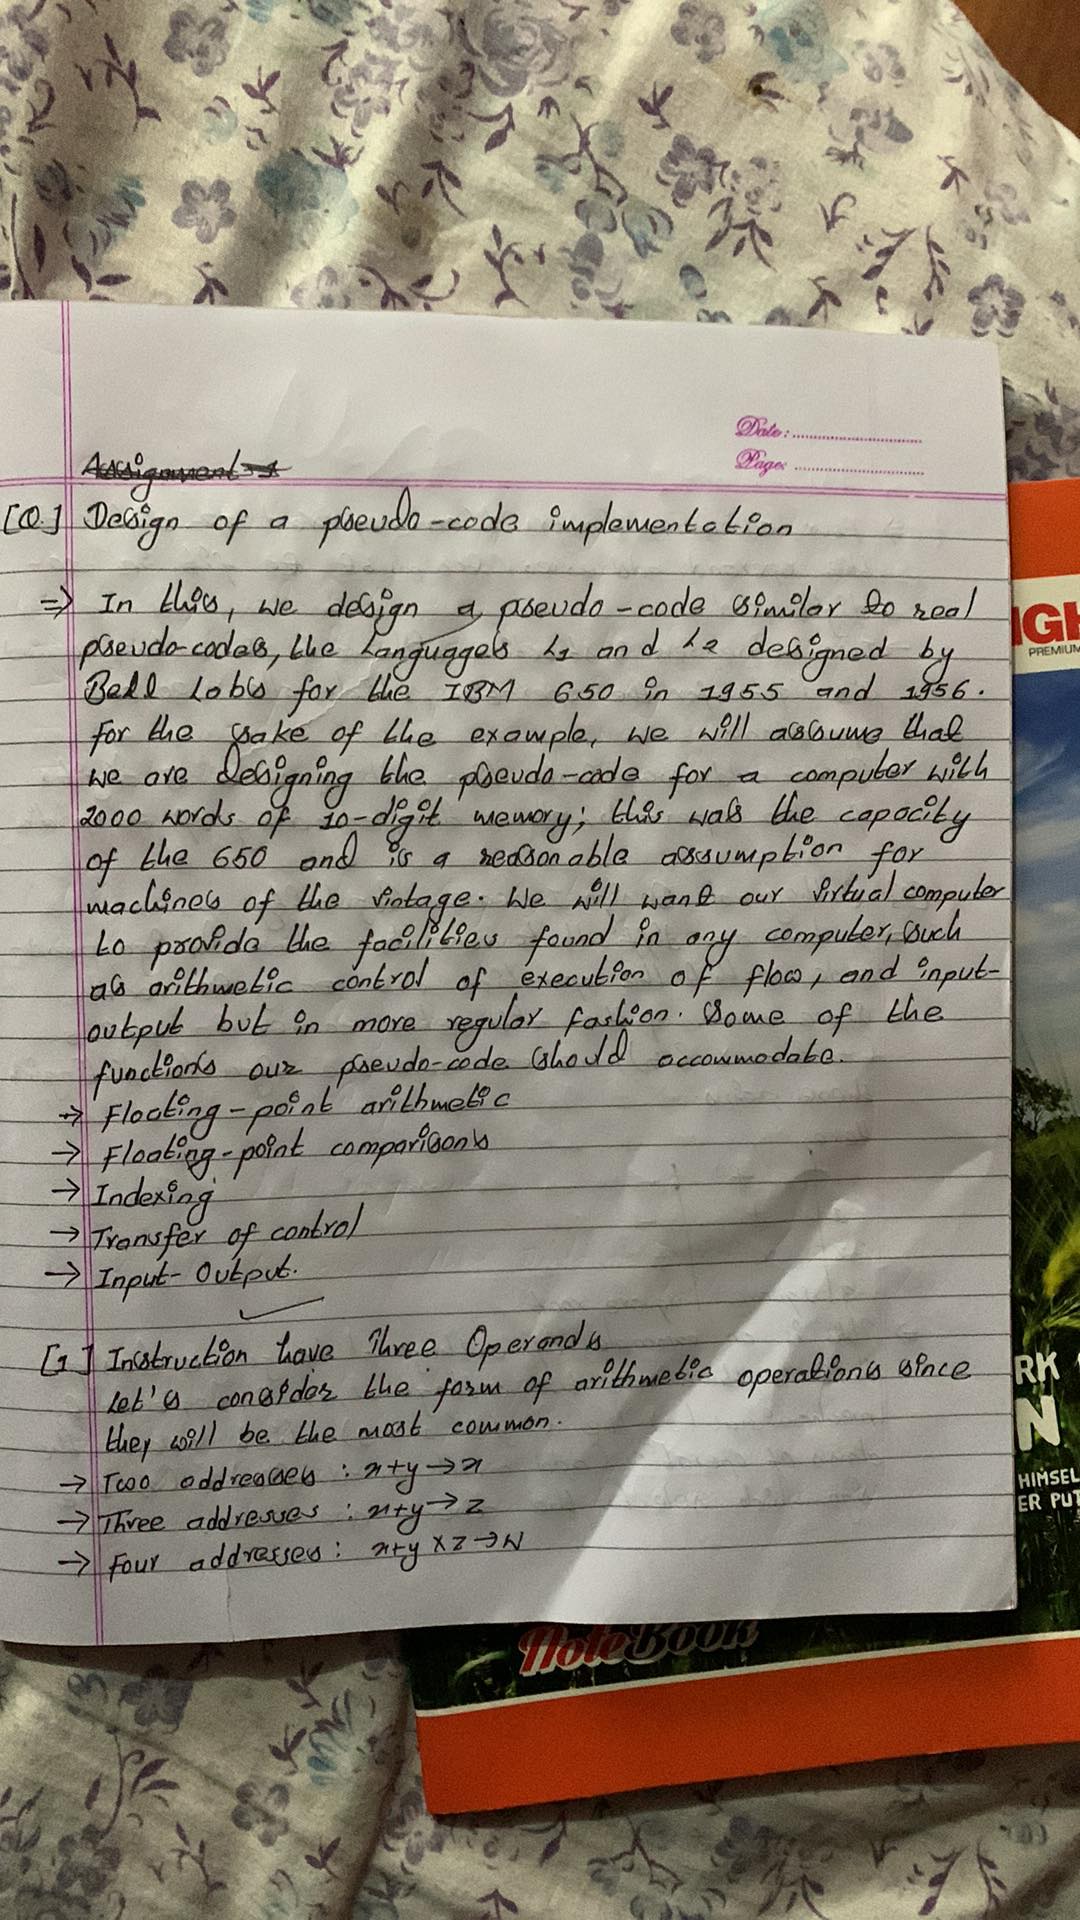 Date:
Page:
Assignment-1
[Q.] Design of a pseudo-code implementation
=> In this, we design a pseudo-code similar to real
pseudo-codes, the Languages L1 and L2 designed by
Bell Labs for the IBM 650 in 1955 and 1956.
for the sake of the example, we will assume that
we are designing the pseudo-code for a computer with
2000 words of 10-digit memory; this was the capacity
of the 650 and is a reasonable assumption for
machines of the vintage. We will want our virtual computer
to provide the facilities found in any computer, such
as arithmetic control of execution of flow, and input-
output but in more regular fashion. Some of the
functions our pseudo-code should accommodate.
→ Floating-point arithmetic
→ Floating-point comparisons
→ Indexing
→ Transfer of control
→ Input-Output.
[1] Instruction have Three Operands
Let's consider the form of arithmetic operations since
they will be the most common.
→ Two addresses : x+y→x
→ Three addresses : x+y→z
→ four addresses : x+y×z→w
IGH
PREMIUM
RK
N
HIMSEL
ER PUT
NoteBook